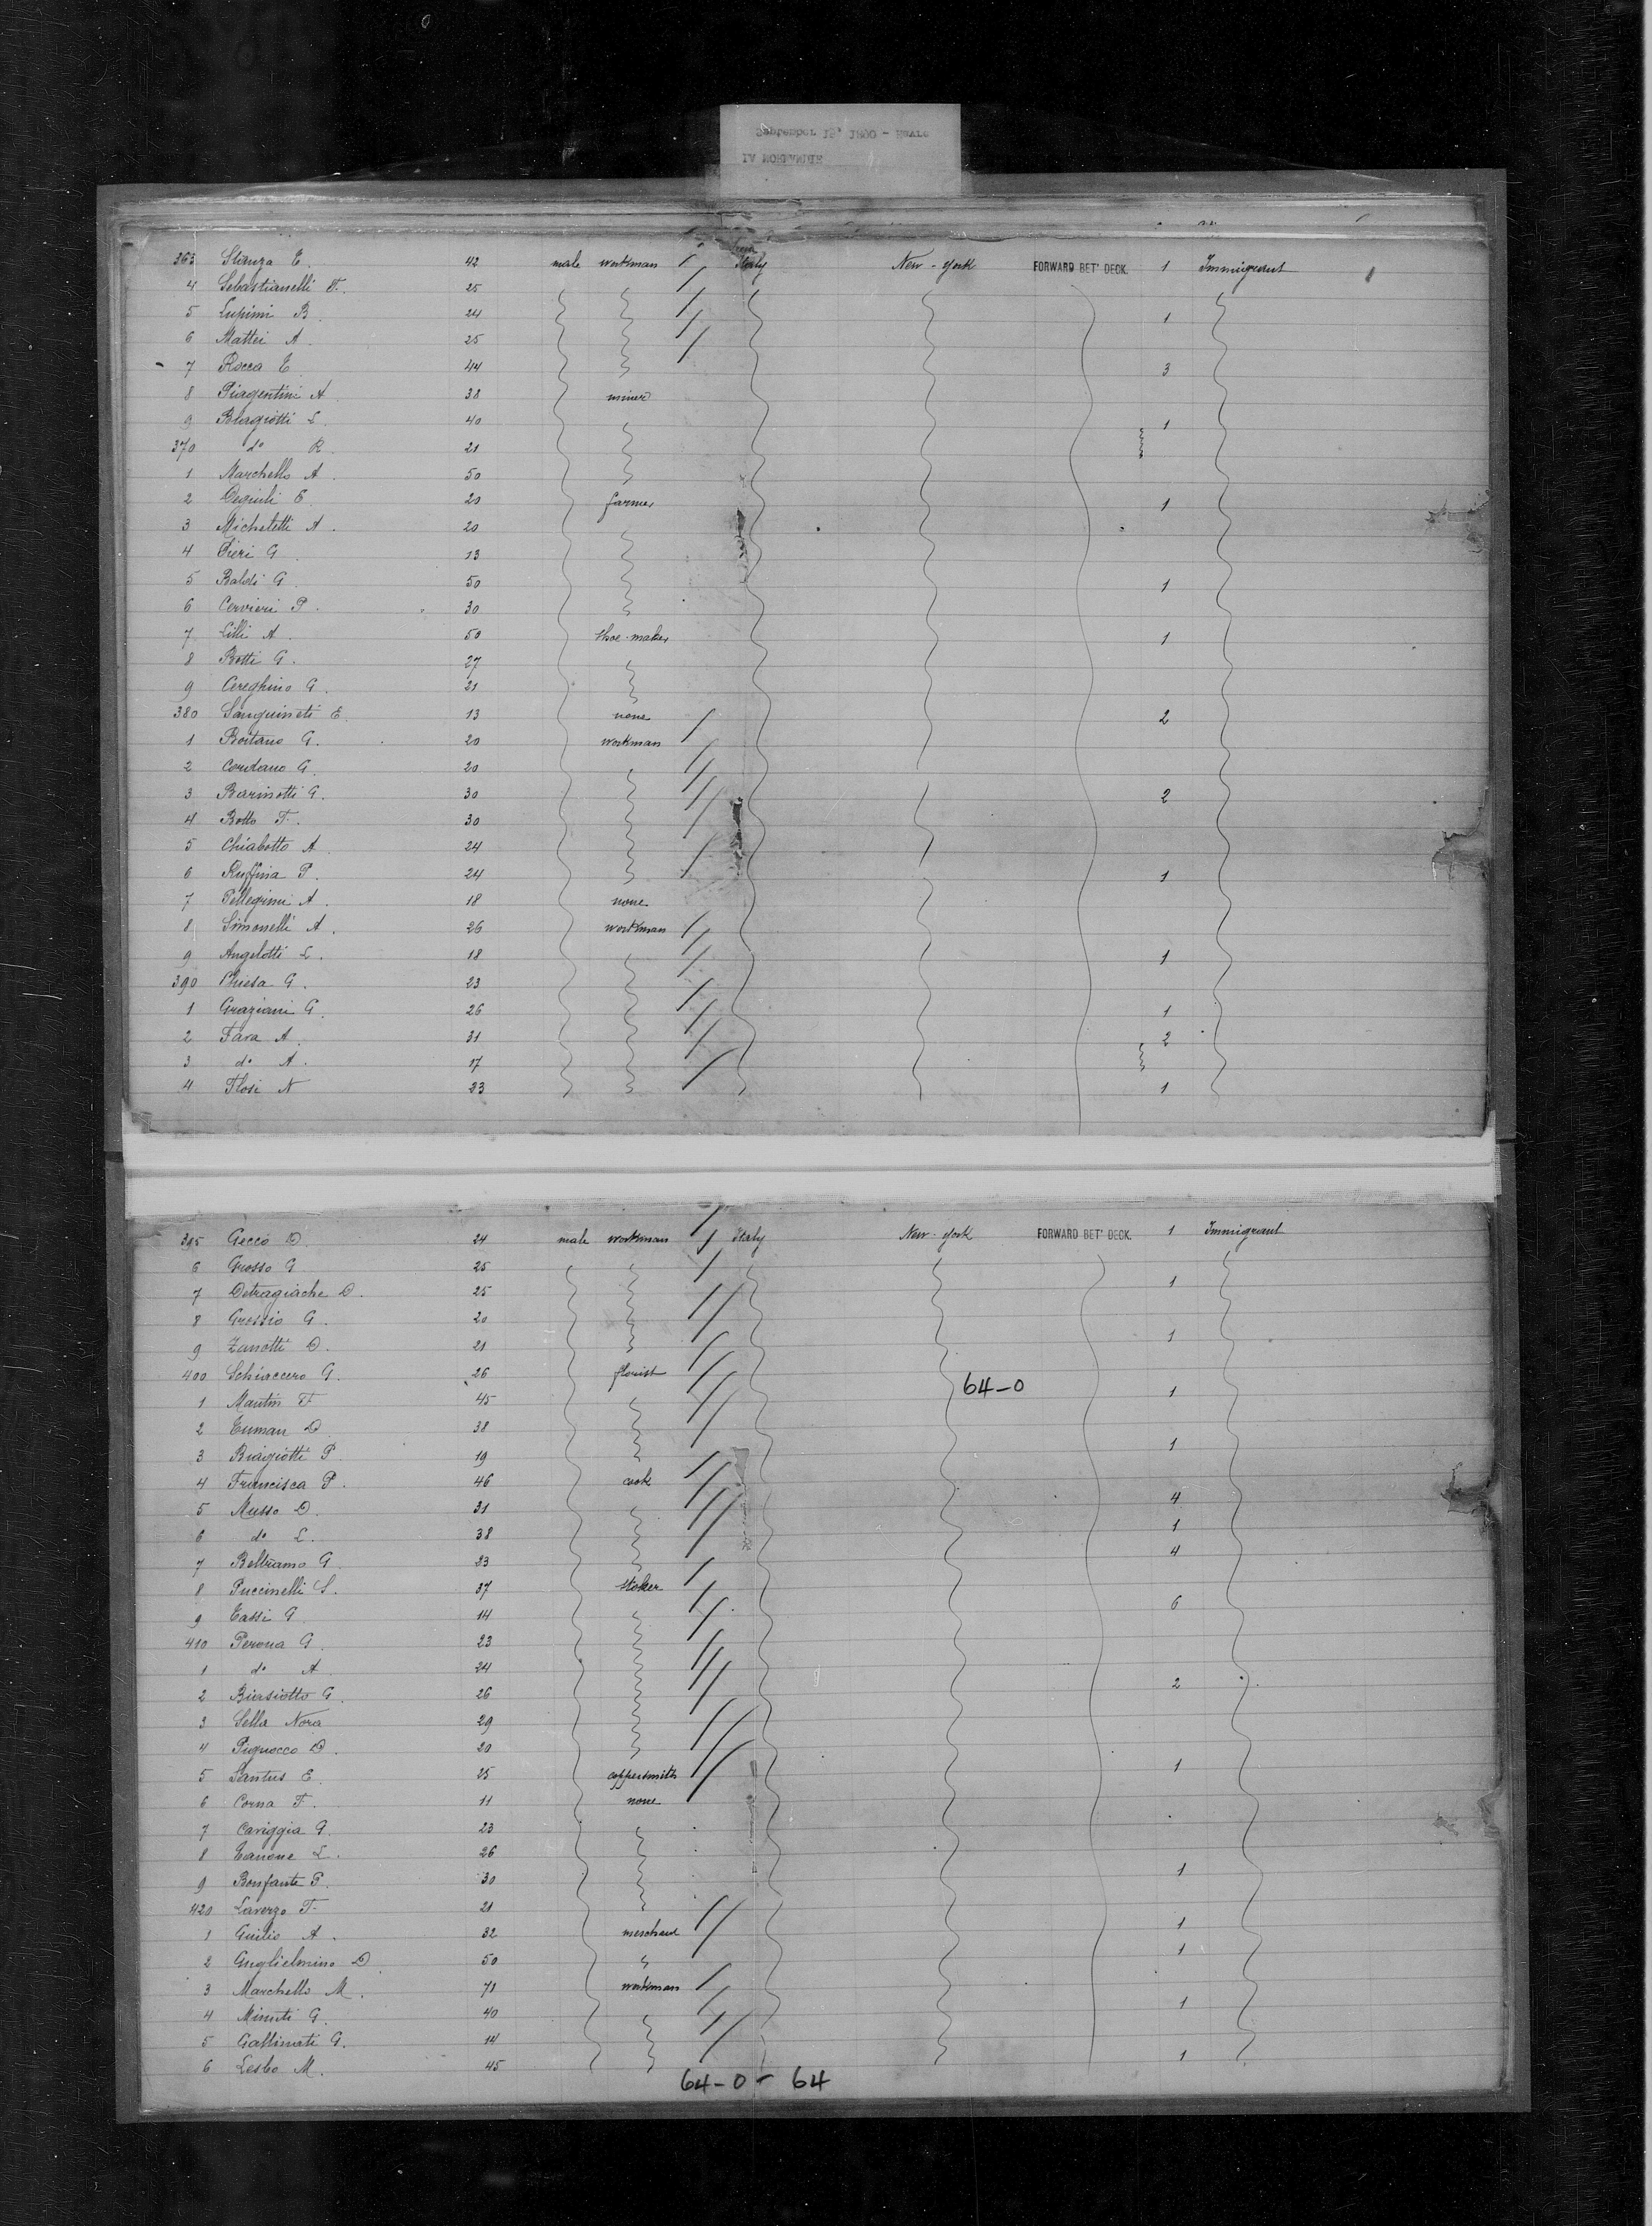 September 13' 1890 - Havre
363 Stanza E. 42 male workman Italy New-York FORWARD BET' DECK. 1 Immigrant
4 Sebastianelli F. 25
5 Lupini B. 24 1
6 Mattei A. 25
7 Rocca E. 44 3
8 Piagentini A. 38 miner
9 Biagiotti L. 40 1
370 do R. 21
1 Marchello A. 50
2 20 farmer 1
3 Micheletti A. 20
4 Pieri G. 13
5 Baldi G. 50 1
6 Cervieri P. 30
7 Lilli A. 50 shoe-maker 1
8 Botti G. 27
9 Cereghino G. 21
380 Sanguineti E. 13 none 2
1 Boitano G. 20 workman
2 Cordano G. 20
3 Barinotti G. 30 2
4 Botto F. 30
5 Chiabotto A. 24
6 Ruffina P. 24 1
7 Pellegrini A. 18 none
8 Simonelli A. 26 workman
9 Angelotti L. 18 1
390 Chiesa G. 23
1 Graziani G. 26 1
2 Fara A. 31 2
3 do A. 17
4 Flosi N 23 1
395 Gecco D. 24 male workman Italy New-York FORWARD BET' DECK. 1 Immigrant
6 Grosso G 25
7 Detragiache D. 25 1
8 Grossio G. 20
9 Zanotti D. 21 1
400 Schiaccero G. 26 florist 64-0 1
1 Mautin F 45
2 Euman D 38
3 Biagiotti P 19 1
4 Francisca P. 46 cook 4
5 Musso D. 31 1
6 do L. 38 4
7 Beltramo G. 23
8 Puccinelli S. 37 stoker 6
9 Tassi G 14
410 Perona G. 23
1 do A. 24 2
2 Biersiotto G. 26
3 Sella Nora 29
4 Pignocco D. 20
5 Santus E. 25 coppersmith 1
6 Corna F. 11 none
7 Cariggia G. 23
8 Canone L. 26
9 Bonfante P. 30 1
420 Laverzo F. 21
1 Guilio A. 32 merchant 1
2 Guglielmino D. 50 1
3 Marchello M. 71 workman
4 Minuti G. 40 1
5 Gallinati G. 14
6 Lesbo M. 45 1
64-0-64